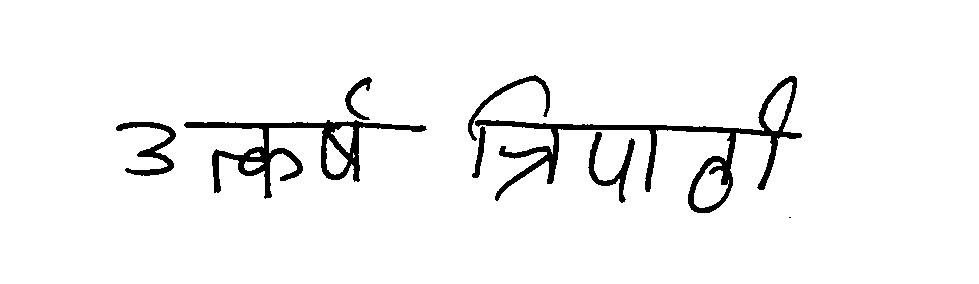 उत्कर्ष त्रिपाठी